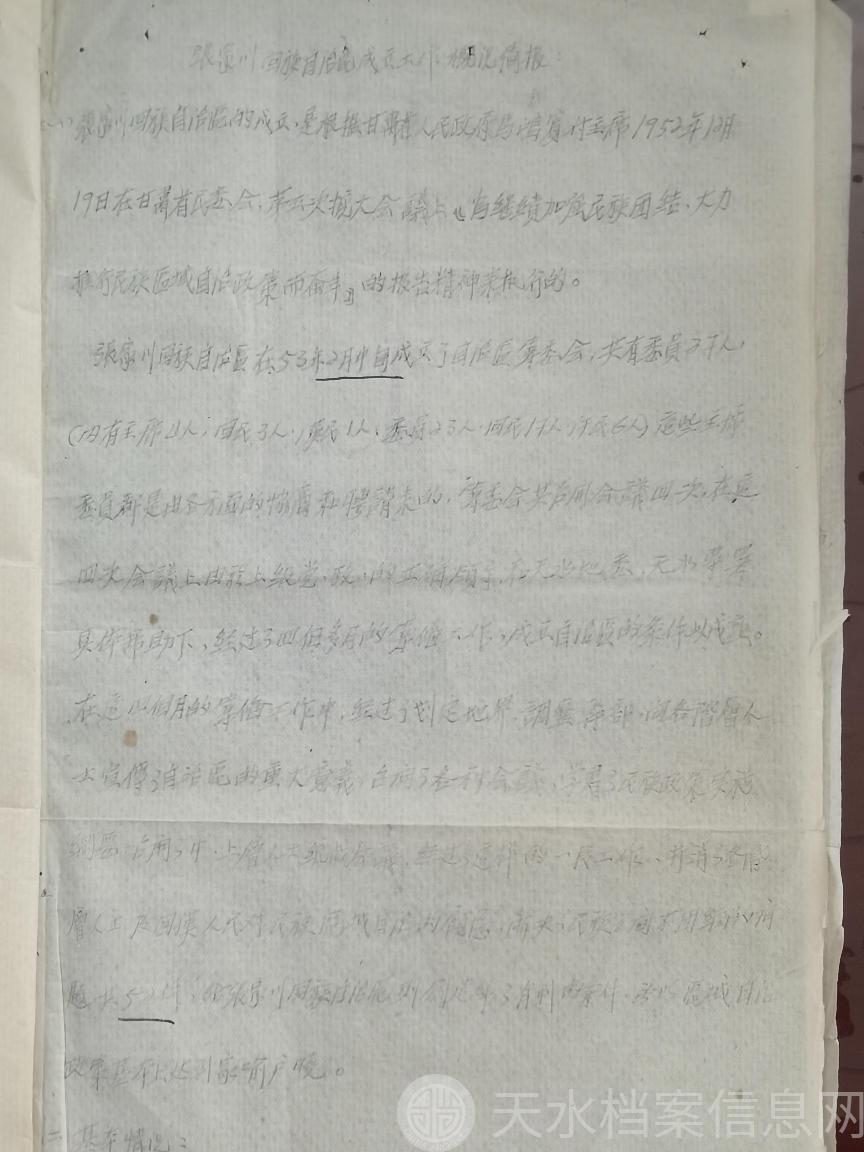 張家川回族自治區成立工作概況簡报：
(一)張家川回族自治區的成立、是根据甘肅省人民政府馬鴻賓付主席1952年12月
19日在甘肅省民委会、第五次擴大会議上《为继续加强民族团结、大力
推行民族區域自治政策而奋斗》的报告精神来执行的。
張家川回族自治區在53年2月中旬成立了自治區筹委会，共有委員27人，
(内有主席4人，回民3人，漢民1人，委員23人，回民17人，汗民6人)这些主席
委員都是由各方面的協商和聘請来的，筹委会共召開会議四次，在這
四次会議上由於上級党、政、的正確領导，和天水地委、天水專署
具体帮助下、经过了四個多月的筹備工作，成立自治區的条件以成熟。
在這四個月的筹備工作中，经过了划定地界、調整幹部、向各階層人
士宣傳了自治區的重大意義，召開了各种会議，学習了民族政策实施
綱要，召開了中、上層人士 会議，经过了這样的一段工作，并消了各階
層人士及回漢人民对民族區域自治的 ，解决了民族之間不团结的问
題共52件，给張家川回族自治區 了有利的条件，所以區域自治
政策基本上达到家喻户晓。
二 基本情况：
天水档案信息网